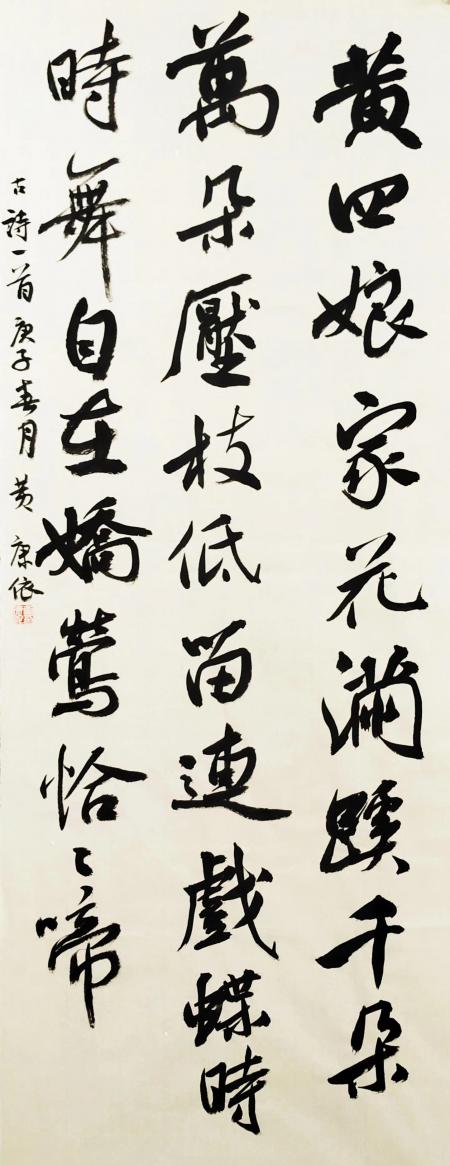 黄四娘家花滿蹊千朵
萬朵壓枝低留連戲蝶時
時舞自在嬌鶯恰〻啼
古詩一首庚子春月黄康依